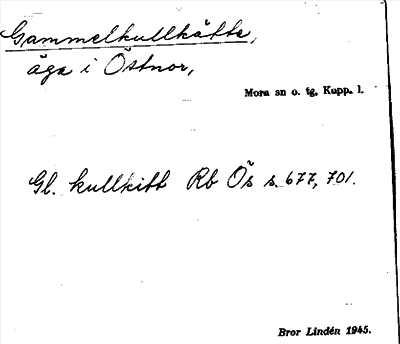 Gammelkullkätte,
äga i Östnor,
Mora sn o. tg, Kopp. l.
Gl. kullkitt Rb Ös s. 677, 701.
Bror Lindén 1945.